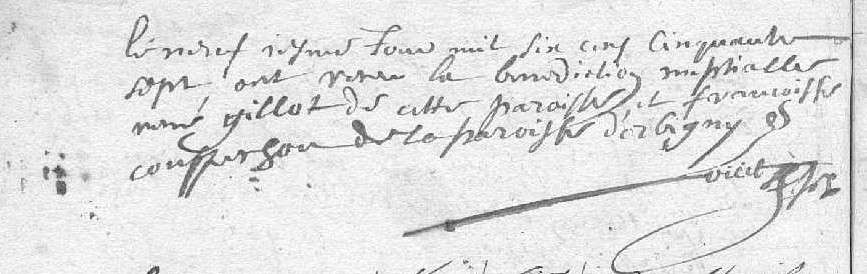 le neuf iesme Jour mil six cens cinquante
sept ont receu la benediction nuptialle
rené gillot de cette paroisse et francoisse
de la paroisse d'orbigny